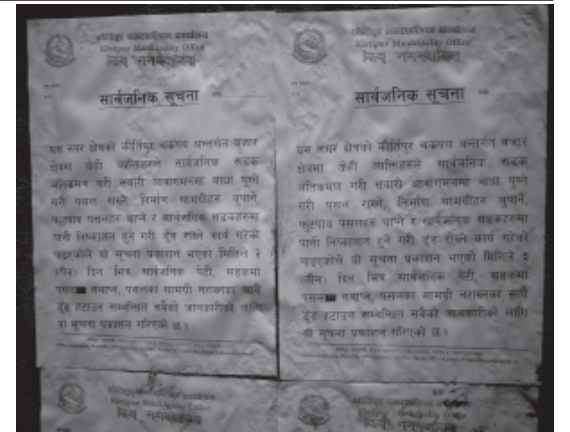 कीर्तिपुर नगरपालिका कार्यालय
Kirtipur Municipality Office
सार्वजनिक सूचना
यस नगर क्षेत्रको कीर्तिपुर चक्रपथ अन्तर्गत बजार
क्षेत्रमा केही व्यक्तिहरुले सार्वजनिक सडक
अतिक्रमण गरी सवारी आवागमनमा बाधा पुग्ने
गरी पसल राख्ने, निर्माण सामग्रीहरु थुपार्ने,
फुटपाथ पसलहरु थाप्ने र सार्वजनिक सडकहरुमा
पानी निष्काशन हुने गरी ढुँड राख्ने कार्य गरेको
पाइएकोले यो सूचना प्रकाशन भएको मितिले ३
(तीन) दिन भित्र सार्वजनिक पेटी, सडकमा
पसल नथाप्न, पसलका सामग्री नराख्नका साथै
ढुँड हटाउन सम्बन्धित सबैको जानकारीको लागि
यो सूचना प्रकाशन गरिएको छ।
कीर्तिपुर नगरपालिका कार्यालय
Kirtipur Municipality Office
सार्वजनिक सूचना
यस नगर क्षेत्रको कीर्तिपुर चक्रपथ अन्तर्गत बजार
क्षेत्रमा केही व्यक्तिहरुले सार्वजनिक सडक
अतिक्रमण गरी सवारी आवागमनमा बाधा पुग्ने
गरी पसल राख्ने, निर्माण सामग्रीहरु थुपार्ने,
फुटपाथ पसलहरु थाप्ने र सार्वजनिक सडकहरुमा
पानी निष्काशन हुने गरी ढुँड राख्ने कार्य गरेको
पाइएकोले यो सूचना प्रकाशन भएको मितिले ३
(तीन) दिन भित्र सार्वजनिक पेटी, सडकमा
पसल नथाप्न, पसलका सामग्री नराख्नका साथै
ढुँड हटाउन सम्बन्धित सबैको जानकारीको लागि
यो सूचना प्रकाशन गरिएको छ।
Kirtipur Municipality Office
Kirtipur Municipality Office